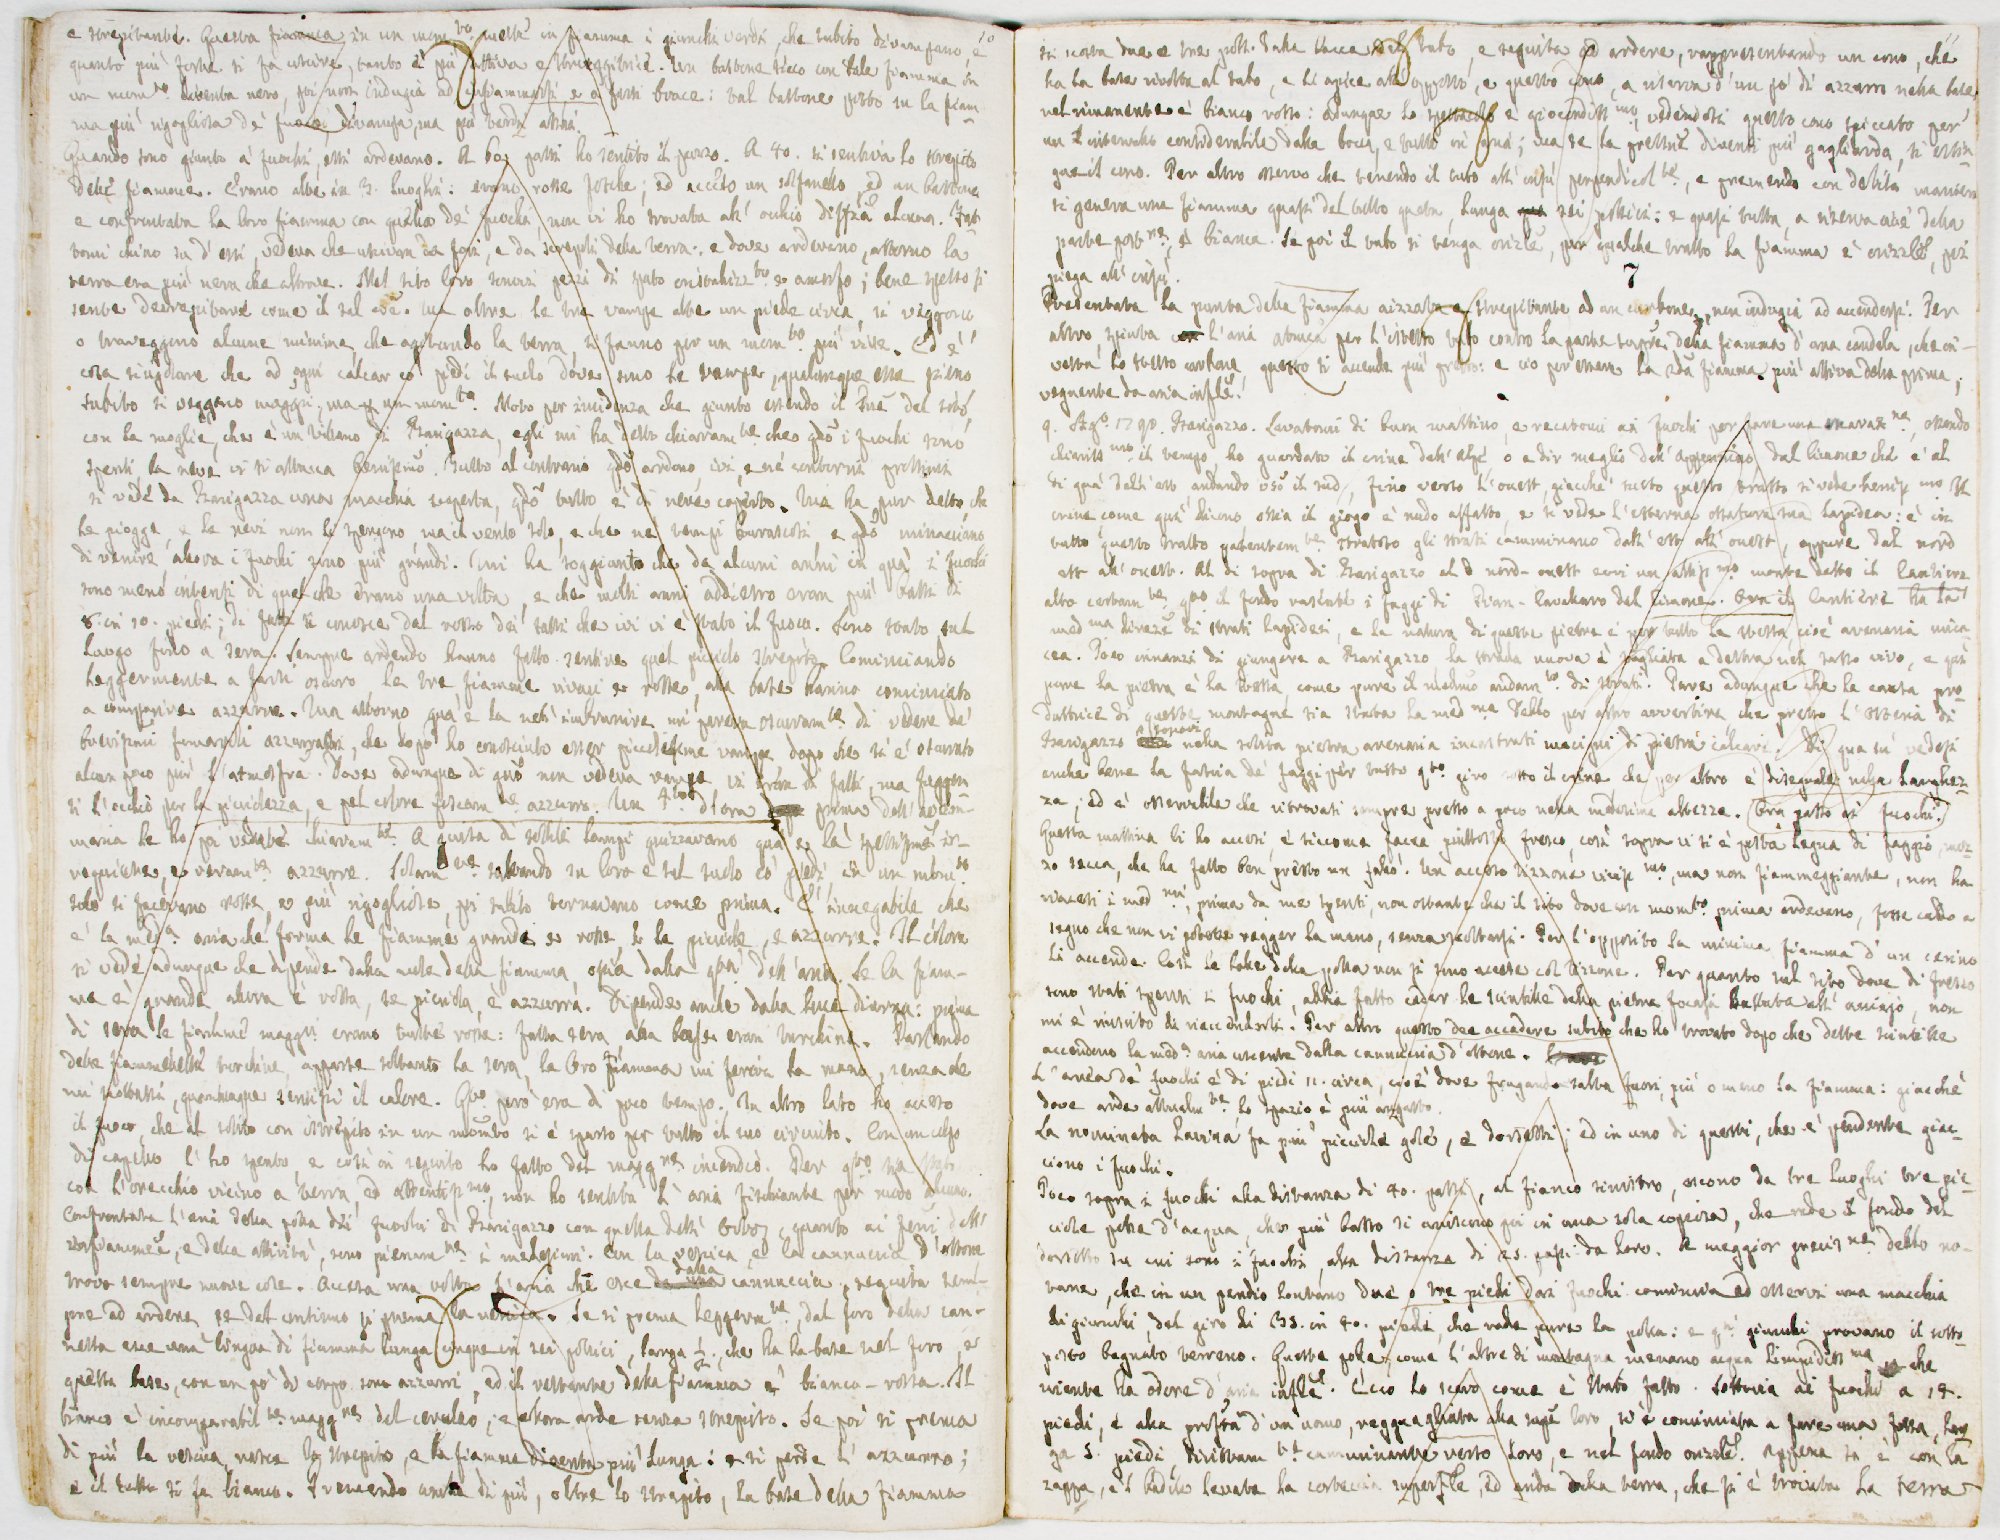 e strepitante. Questa fiamma in un mom.to mette in fiamma i giunchi verdi, che subito divampano, e
quanto più forte si fa uscire, tanto è più attiva e struggitrice. Un bastone secco con tale fiamma in
un mom.to diventa nero, poi non indugia ad infiammarsi, e a farsi brace: tal bastone posto su la fiam-
ma più rigogliosa de' fuochi divampa, ma più tardi assai.
Quando sono giunto a' fuochi, essi ardevano. A 60. passi ho sentito il puzzo. A 40. si sentiva lo strepito
delle fiamme. Erano alte in 3. luoghi: erano rosse fosche; ed acceso un solfanello, ed un bastone
e confrontata la loro fiamma con quella de' fuochi, non vi ho trovata all'occhio diffza alcuna.
chino su d'essi, vedeva che uscivan da fori, e da screpoli della terra: e dove ardevano, attorno la
terra era più nera che altrove. Nel sito loro sonovi pezzi di spato cristallizz.to e amorfo; bene spesso si
sente decrepitare come il sal coe. Ma oltre le tre vampe alte un piede circa, si veggono
o traveggono alcune minime, che agitando la terra si fanno per un mom.to più vive. Ed è
cosa singolare che ad ogni calcar co' piedi il suolo dove sono le vampe, qualunque esse sieno,
subito si veggono maggri, ma p un mom.to. Noto per incidenza che giunto essendo il Pne del sito
con la moglie, che è un Villano di Barigazza, egli mi ha detto chiaram.te che qdo i fuochi sono
spenti la neve vi si attacca benissimo. Tutto al contrario qdo ardono ivi, e ne' contorni prossimi
si vede da Barigazza una macchia scoperta, qdo tutto è di neve coperto. Mi ha pur detto che
le piogge, e le nevi non li spengono, ma il vento solo, e che ne' tempi burrascosi, e qdo minacciano
di venire, allora i fuochi sono più grandi. Mi ha soggiunto che da alcuni anni in quà i fuochi
sono meno intensi di quel che erano una volta, e che molti anni addietro eran più bassi di
8. in 10. piedi; di fatti si conosce dal rosso dei sassi che ivi vi è stato il fuoco. Sono stato sul
luogo fino a sera. Sempre ardendo hanno fatto sentire quel picciolo strepito. Cominciando
leggermente a farsi oscuro, le tre fiamme vivaci e rosse, alla base hanno cominciato
a comparire azzurre. Ma attorno quà e la nell'imbrunire mi pareva oscuram.te di vedere de'
brevissimi fumaroli azzurrastri, che dopo ho conosciuto esser picciolissime vampe dopo che si è oscurato
alcun poco più l'atmosfra. Dove adunque di gno non vedeva vampe vi eran di fatti, ma fuggon
si l'occhio per la picciolezza, e pel colore foscam.te azzurro. Un 4.to d'ora prima dell'avem-
maria le ho poi vedute chiaram.te. A guisa di sottili lampi guizzavano quà e là spessissime ir-
requiete, e veram.te azzurre. Solam.te saltando su loro e sul suolo co' piedi in un mom.to
solo si facevano rosse, e più rigogliose, poi subito tornavano come prima. E' innegabile che
è la med.a aria che forma le fiamme grandi e rosse, e le picciole, e azzurre. Il colore
si vede adunque che dipende dalla mole della fiamma, ossia dalla qtà dell'aria. Se la fiam-
ma è grande allora è rossa, se picciola, è azzurra. Dipende anche dalla luce diurna: prima
di sera le fiamme maggri erano tutte rosse: fatta sera alla base eran turchine. Parlando
delle fiammelle turchine, apparse soltanto la sera, la loro fiamma mi feriva la mano, senza che
mi scottassi, quantunque sentissi il calore. Q.to però era di poco tempo. In altro lato ho acceso
il fuoco, che al solito con istrepito in un mom.to si è sparso per tutto il suo circuito. Con un colpo
di cappello l'ho spento, e così in seguito ho fatto del magg.re incendio. Per q.to sia stato
con l'orecchio vicino a terra, ed attentiss.mo, non ho sentita l'aria fischiante per modo alcuno.
Confrontata l'aria della polla dei fuochi di Barigazzo con quella dell'Orto, quanto ai fenni dell'
infiamme, e della attività, sono pienam.te i medesimi. Con la vescica, e la cannuccia d'ottone
trovo sempre nuove cose. Accesa una volta l'aria che esce dalla cannuccia, seguita sem-
pre ad ardere, se del continuo si prema la vescica. Se si prema leggerm.te, dal foro della can-
netta esce una lingua di fiamma lunga cinque in sei pollici, larga 1/2., che ha la base nel foro, e
questa base, con un pò di corpo sono azzurri, ed il restante della fiamma è bianco-rossa. Il
bianco è incomparabil.te magg.re del ceruleo; e allora arde senza strepito. Se poi si prema
di più la vescica, nasce lo strepito, e la fiamma diventa più lunga: e si perde l'azzurro;
e il tutto si fa bianco. Premendo anche di più, oltre lo strepito, la base della fiamma
10
si scosta due e tre poll. dalla bocca del tubo, e seguita ad ardere, rappresentando un cono, che
ha la base rivolta al tubo, e l'apice all'opposto, e questo cono, a riserva d'un pò di azzurro nella base,
nel rimanente è bianco rosso: adunque lo spettacolo è giocondiss.mo, vedendosi questo cono spiccato per
un intervallo considerabile dalla bocca, e tutto in aria; ma se la pressne diventi più gagliarda, si estin-
gue il cono. Per altro osservo che tenendo il tubo all'insù perpendicol.te, e premendo con debita maniera
si genera una fiamma quasi del tutto queta, lunga sei pollici: e quasi tutta, a riserva cioè della
parte post.re, è bianca. Se poi il tubo si tenga orizle, per qualche tratto la fiamma è orizzle, poi
piega all'insù.
7
Presentata la punta della fiamma aizzata e strepitante ad un carbone, non indugia ad accendersi. Per
altro, spinta l'aria atmca per l'istesso tubo contro la parte supre della fiamma d'una candela, che in-
vesta lo stesso carbone, questo si accende più presto: e ciò per essere la 2da fiamma più attiva della prima,
vegnente da aria infle.
9. Ag.o 1790. Barigazzo. Levatomi di buon mattino, e recatomi ai fuochi per fare una escavaz.ne, essendo
chiariss.mo il tempo, ho guardato il crine dell'alpi, o a dir meglio dell'Appennino dal Cimone che è al
di qua dell'est andando vso il sud, fino verso l'ouest, giacchè tutto questo tratto si vede beniss.mo. Il
crine come quà dicono ossia il giogo è nudo affatto, e si vede l'esterna ossatura sua lapidea: è in
tutto questo tratto patentem.te stratoso gli strati camminano dall'est all'ouest, oppure dal nord
est all'ouest. Al di sopra di Barigazzo al nord-ouest evvi un altiss.mo monte detto il Cantiere
alto certam.te q.to il fondo rasente i faggi di Pian-Cavallaro del Cimone. Ora il Cantiere ha la
med.ma direzne di strati lapidei, e la natura di queste pietre è per tutto la stessa cioè arenaria mica-
cea. Poco innanzi di giungere a Barigazzo la strada nuova è tagliata a destra nel sasso vivo, e quì
pure la pietra è la stessa, come pure il medmo andam.to di strati. Pare adunque che la causa pro-
duttrice di queste montagne sia stata la med.ma. Debbo per altro avvertire che presso l'osteria di
Barigazzo sonovi nella solita pietra arenaria incastrati macigni di pietra calcari. Di quà sù vedesi
anche bene la fascia de' faggi per tutto q.to giro sotto il crine che per altro è diseguale nella larghez-
za; ed è osservabile che ritrovasi sempre presso a poco nella medesima altezza. Ora passo ai fuochi.
Questa mattina li ho accesi, e siccome facea piuttosto fresco, così sopra vi si è posta legna di faggio, mez-
zo secca, che ha fatto ben presto un falò. Un acceso tizzone viviss.mo, ma non fiammeggiante, non ha
riaccesi i med.mi, prima da me spenti, non ostante che il sito dove un mom.to prima ardevano, fosse caldo a
segno che non vi potesse regger la mano, senza scottarsi. Per l'opposito la minima fiamma d'un cerino
li accende. Così le bolle della polla non si sono accese col tizzone. Per quanto sul sito dove di fresco
sono stati spenti i fuochi, abbia fatto cader le scintille della pietra focaja battuta all'acciajo, non
mi è riuscito di riaccenderli. Per altro questo dee accadere subito che ho trovato dopo che dette scintille
accendono la med.a aria uscente dalla cannuccia d'ottone.
L'area de' fuochi è di piedi 11. circa, così dove frugando salta fuori, più o meno la fiamma: giacchè
dove arde attualm.te lo spazio è più angusto.
La nominata Lavina fa più picciole gole, e dossetti; ed in uno di questi, che è pendente giac-
ciono i fuochi.
Poco sopra i fuochi alla distanza di 40. passi, al fianco sinistro, escono da tre luoghi tre pic-
ciole polle d'acqua, che più basso si uniscono poi in una sola copiosa, che rade il fondo del
dossetto su cui sono i fuochi, alla distanza di 25. passi da loro. A maggior precis.ne debbo no-
tare, che in un pendìo lontano due o tre piedi dai fuochi comincia ad esservi una macchia
di giunchi del giro di 35. in 40. piedi, che rade pure la polla: e q.ti giunchi provano il sotto-
posto bagnato terreno. Queste polle, come l'altre di montagna menano acqua limpidiss.ma che
niente ha odore d'aria infle. Ecco lo scavo come è stato fatto. Sottovia ai fuochi a 14.
piedi, e alla profdtà d'un uomo, ragguagliata alla supe loro, si è cominciata a fare una fossa, lar-
ga 5. piedi, dirittam.te camminante verso loro, e nel fondo orizzle. Appena si è con la
zappa, e 'l badile levata la corteccia superfle, ed arida della terra, che si è trovata la terra